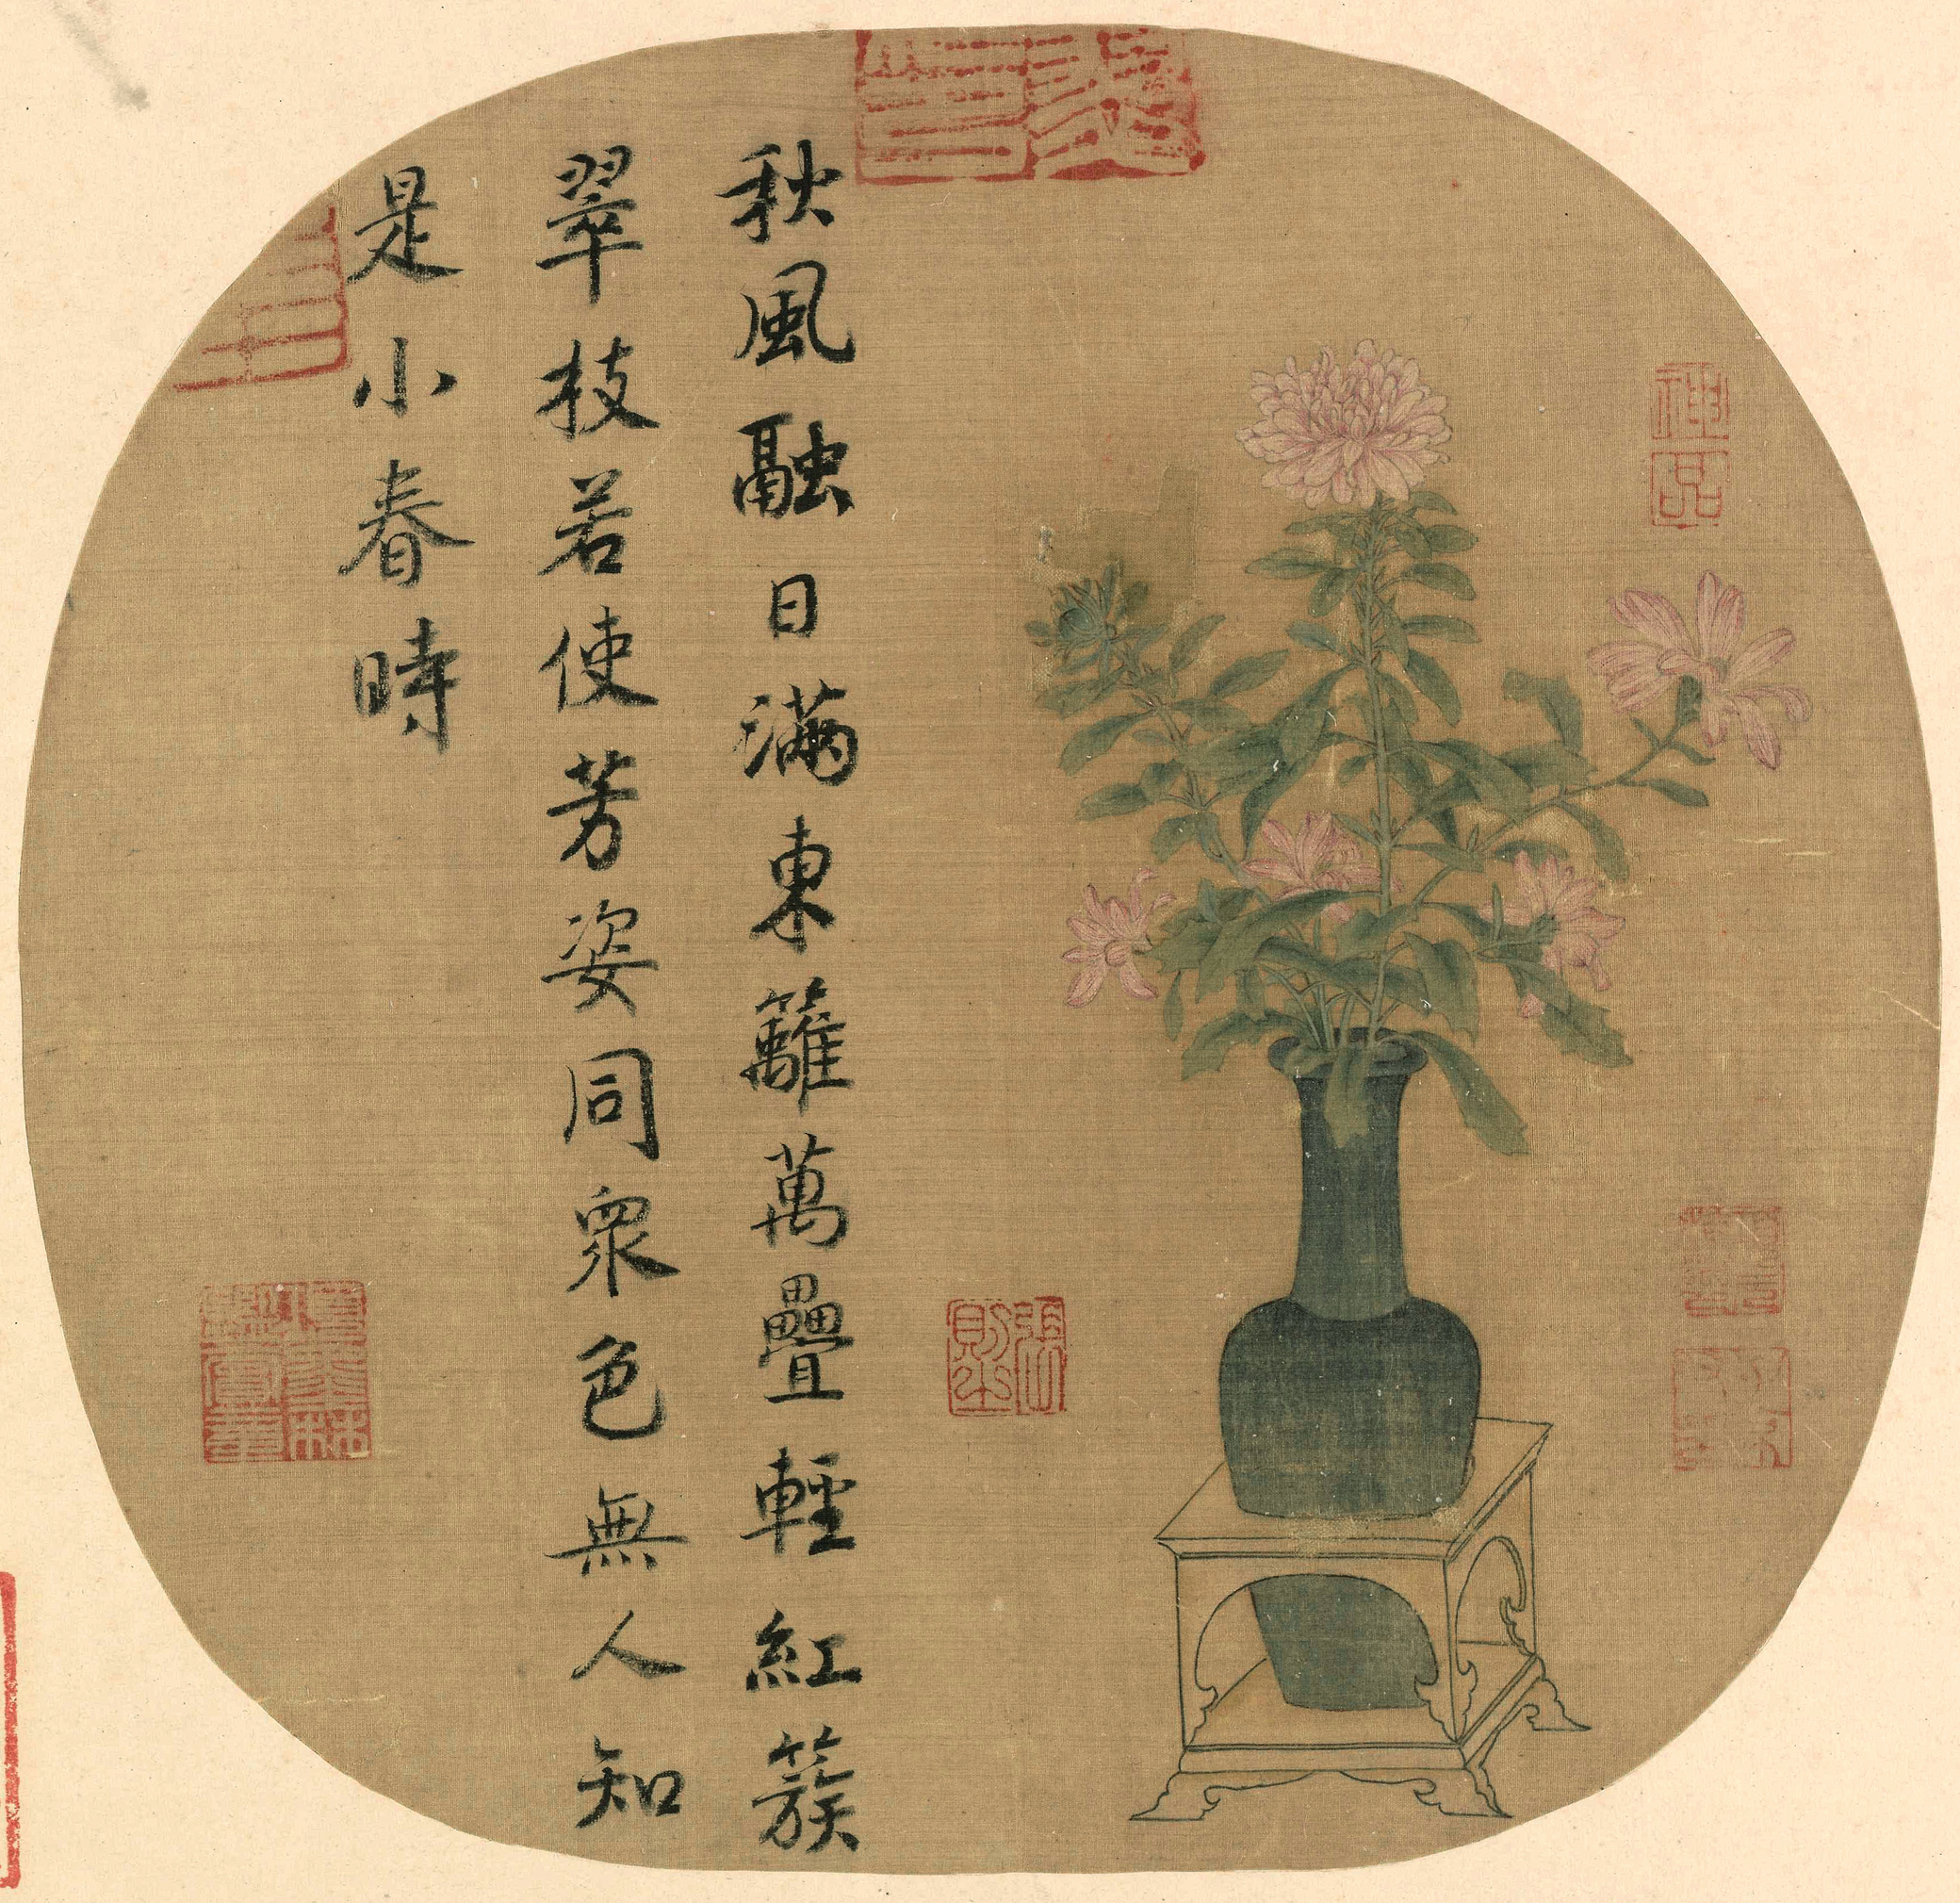 秋風融日滿東籬萬疊輕紅簇
翠枝若使芳姿同衆色無人知
是小春時
神品
張則之